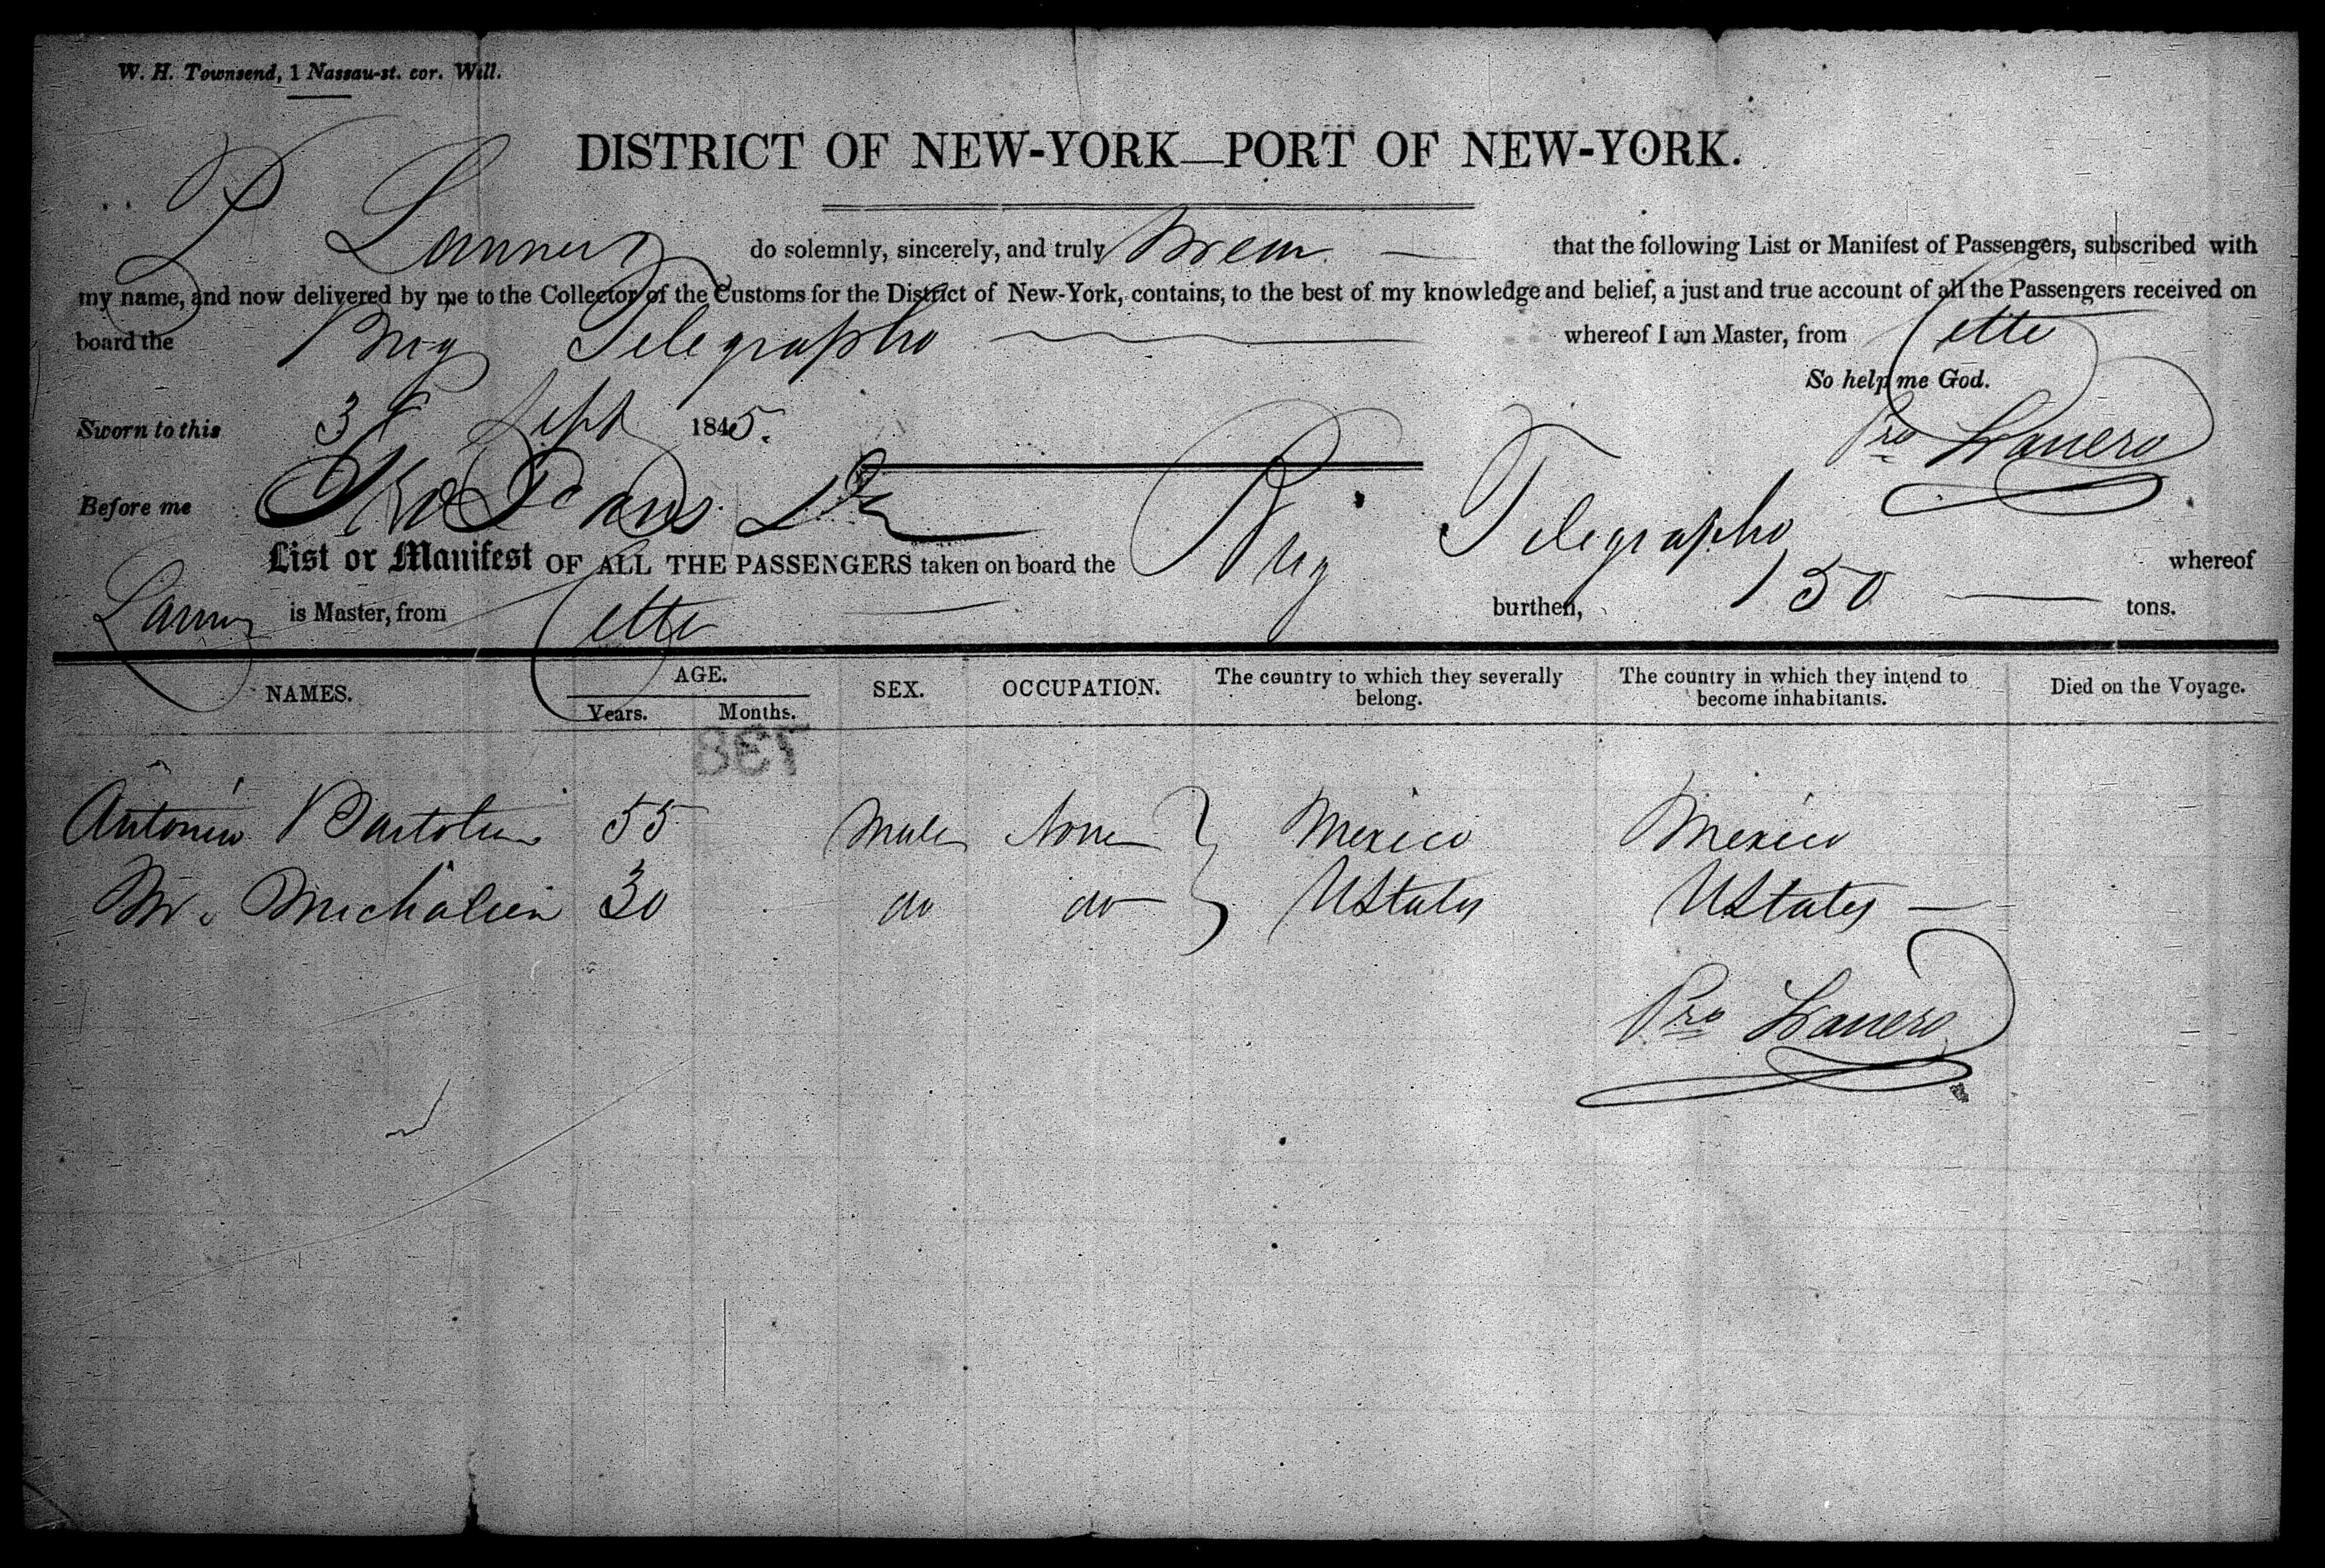 W. H. Townsend, 1 Nassau-st. cor. Wall.
DISTRICT OF NEW-YORK—PORT OF NEW-YORK.
P do solemnly, sincerely, and truly swear — that the following List or Manifest of Passengers, subscribed with
my name, and now delivered by me to the Collector of the Customs for the District of New-York, contains, to the best of my knowledge and belief, a just and true account of all the Passengers received on
board the Brig Telegrapho — whereof I am Master, from Cette
So help me God.
Sworn to this 3d Sept 1845.
Pro Lanero
Before me
List or Manifest OF ALL THE PASSENGERS taken on board the Brig Telegrapho whereof
is Master, from Cette — burthen, 150 — tons.
NAMES. AGE. SEX. OCCUPATION. The country to which they severally belong. The country in which they intend to become inhabitants. Died on the Voyage.
Years. Months.
738
Antonio 55 Male None Mexico Mexico
Mr. 30 do do UStates UStates —
Pro Lanero